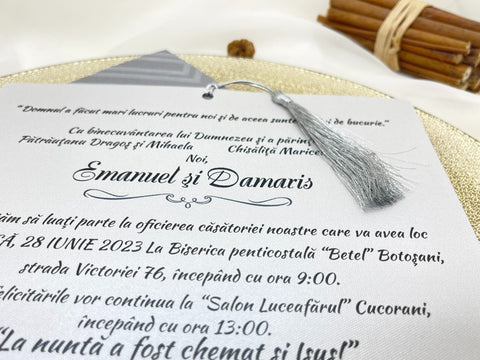 "Domnul a făcut mari lucruri pentru noi și de aceea sunt de bucurie."
Cu binecuvântarea lui Dumnezeu și a
Pătrăuțanu Dragoș și Mihaela Chisăliță
Noi,
Emanuel și Damaris
să luați parte la oficierea căsătoriei noastre care va avea loc
28 IUNIE 2023 La Biserica penticostală "Betel" Botoșani,
strada Victoriei 76, începând cu ora 9:00.
vor continua la "Salon Luceafărul" Cucorani,
începând cu ora 13:00.
"La nuntă a fost chemat și Isus!"